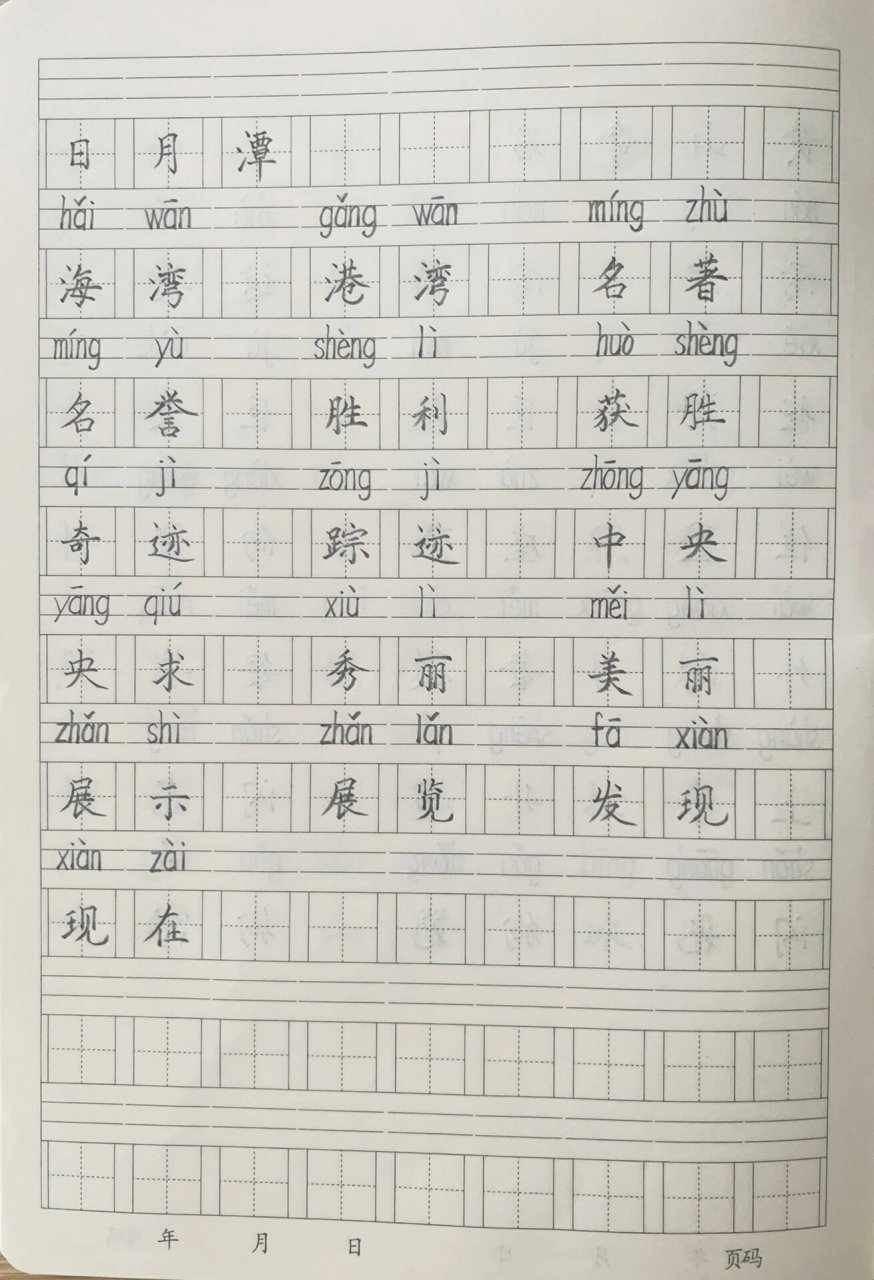 日 月 潭
hǎi wān gǎng wān míng zhù
海 湾 港 湾 名 著
míng yù shèng lì huò shèng
名 誉 胜 利 获 胜
qí jì zōng jì zhōng yāng
奇 迹 踪 迹 中 央
yāng qiú xiù lì měi lì
央 求 秀 丽 美 丽
zhǎn shì zhǎn lǎn fā xiàn
展 示 展 览 发 现
xiàn zài
现 在
年 月 日 页码